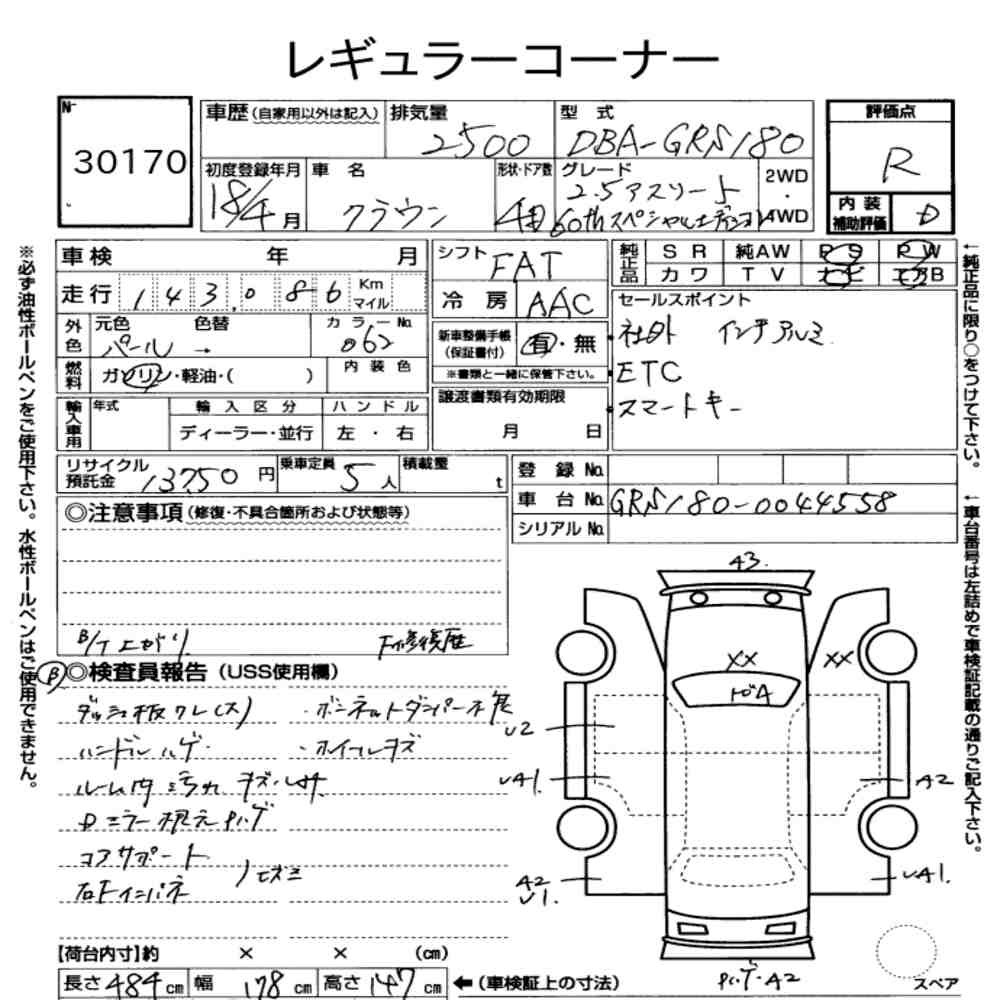 レギュラーコーナー
No
30170
車歴(自家用以外は記入) 排気量 2500 型式 DBA-GRS180
初度登録年月 18/4月 車名 クラウン 形状・ドア数 4D グレード 2.5アスリート 60thスペシャルエディション 2WD・4WD
評価点 R
内装補助評価 D
車検 年 月
走行 143,086 Km マイル
外色 元色 パール 色替 → カラーNo. 062
燃料 ガソリン・軽油・( ) 内装色
輸入車用 年式 輸入区分 ディーラー・並行 ハンドル 左・右
シフト FAT
冷房 AAC
新車整備手帳(保証書付) 有・無
※書類と一緒に保管下さい。
譲渡書類有効期限
月 日
純正品 SR 純AW PS PW
カワ TV ナビ エアB
セールスポイント
社外 インチアルミ
ETC
スマートキー
リサイクル預託金 13750円 乗車定員 5人 積載量 t
登録No.
車台No. GRS180-0044558
シリアルNo.
◎注意事項(修復・不具合箇所および状態等)
B/T上がり F修復歴
B ◎検査員報告(USS使用欄)
ダッシュ板ワレ(大) ・ボンネットダンパー不良
ハンドルハゲ ・ホイールキズ
ルーム内汚れ キズ・
Dミラー根元ハゲ
コアサポート
右Fインパネ
【荷台内寸】約 × × (cm)
長さ 484 cm 幅 178 cm 高さ 147 cm ←(車検証上の寸法)
A3.
XX
XX
トビA
U2
UA1.
A2
A2
U1.
UA1.
ハゲ・A2
スペア
※必ず油性ボールペンをご使用下さい。水性ボールペンはご使用できません。
←純正品に限り○をつけて下さい。
←車台番号は左詰めで車検証記載の通りご記入下さい。